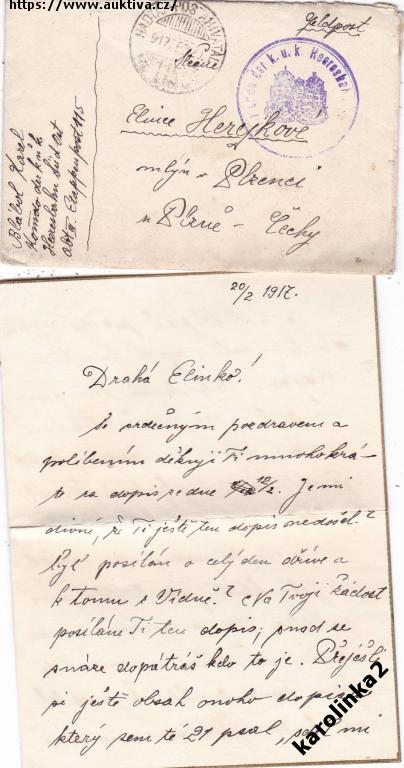 https://www.auktiva.cz/
Feldpost
Elince Herejkové
mlýn v Plzenci
u Plzně - Čechy
Karel
Etappenpost 115
20/2 1917.
Drahá Elinko!
Se srdečným pozdravem a
políbením děkuji Ti mnohokrá-
te za dopis ze dne 12/2. Je mi
divné, že Ti ještě ten dopis nedošel?
byl posílán o celý den dříve a
k tomu z Vídně? Na Tvoji žádost
posílám Ti ten dopis, snad se
snáze dopátráš kdo to je. Přeješ-li
si ještě obsah onoho dopisu
který sem té 21 psal, mi
karolinka2